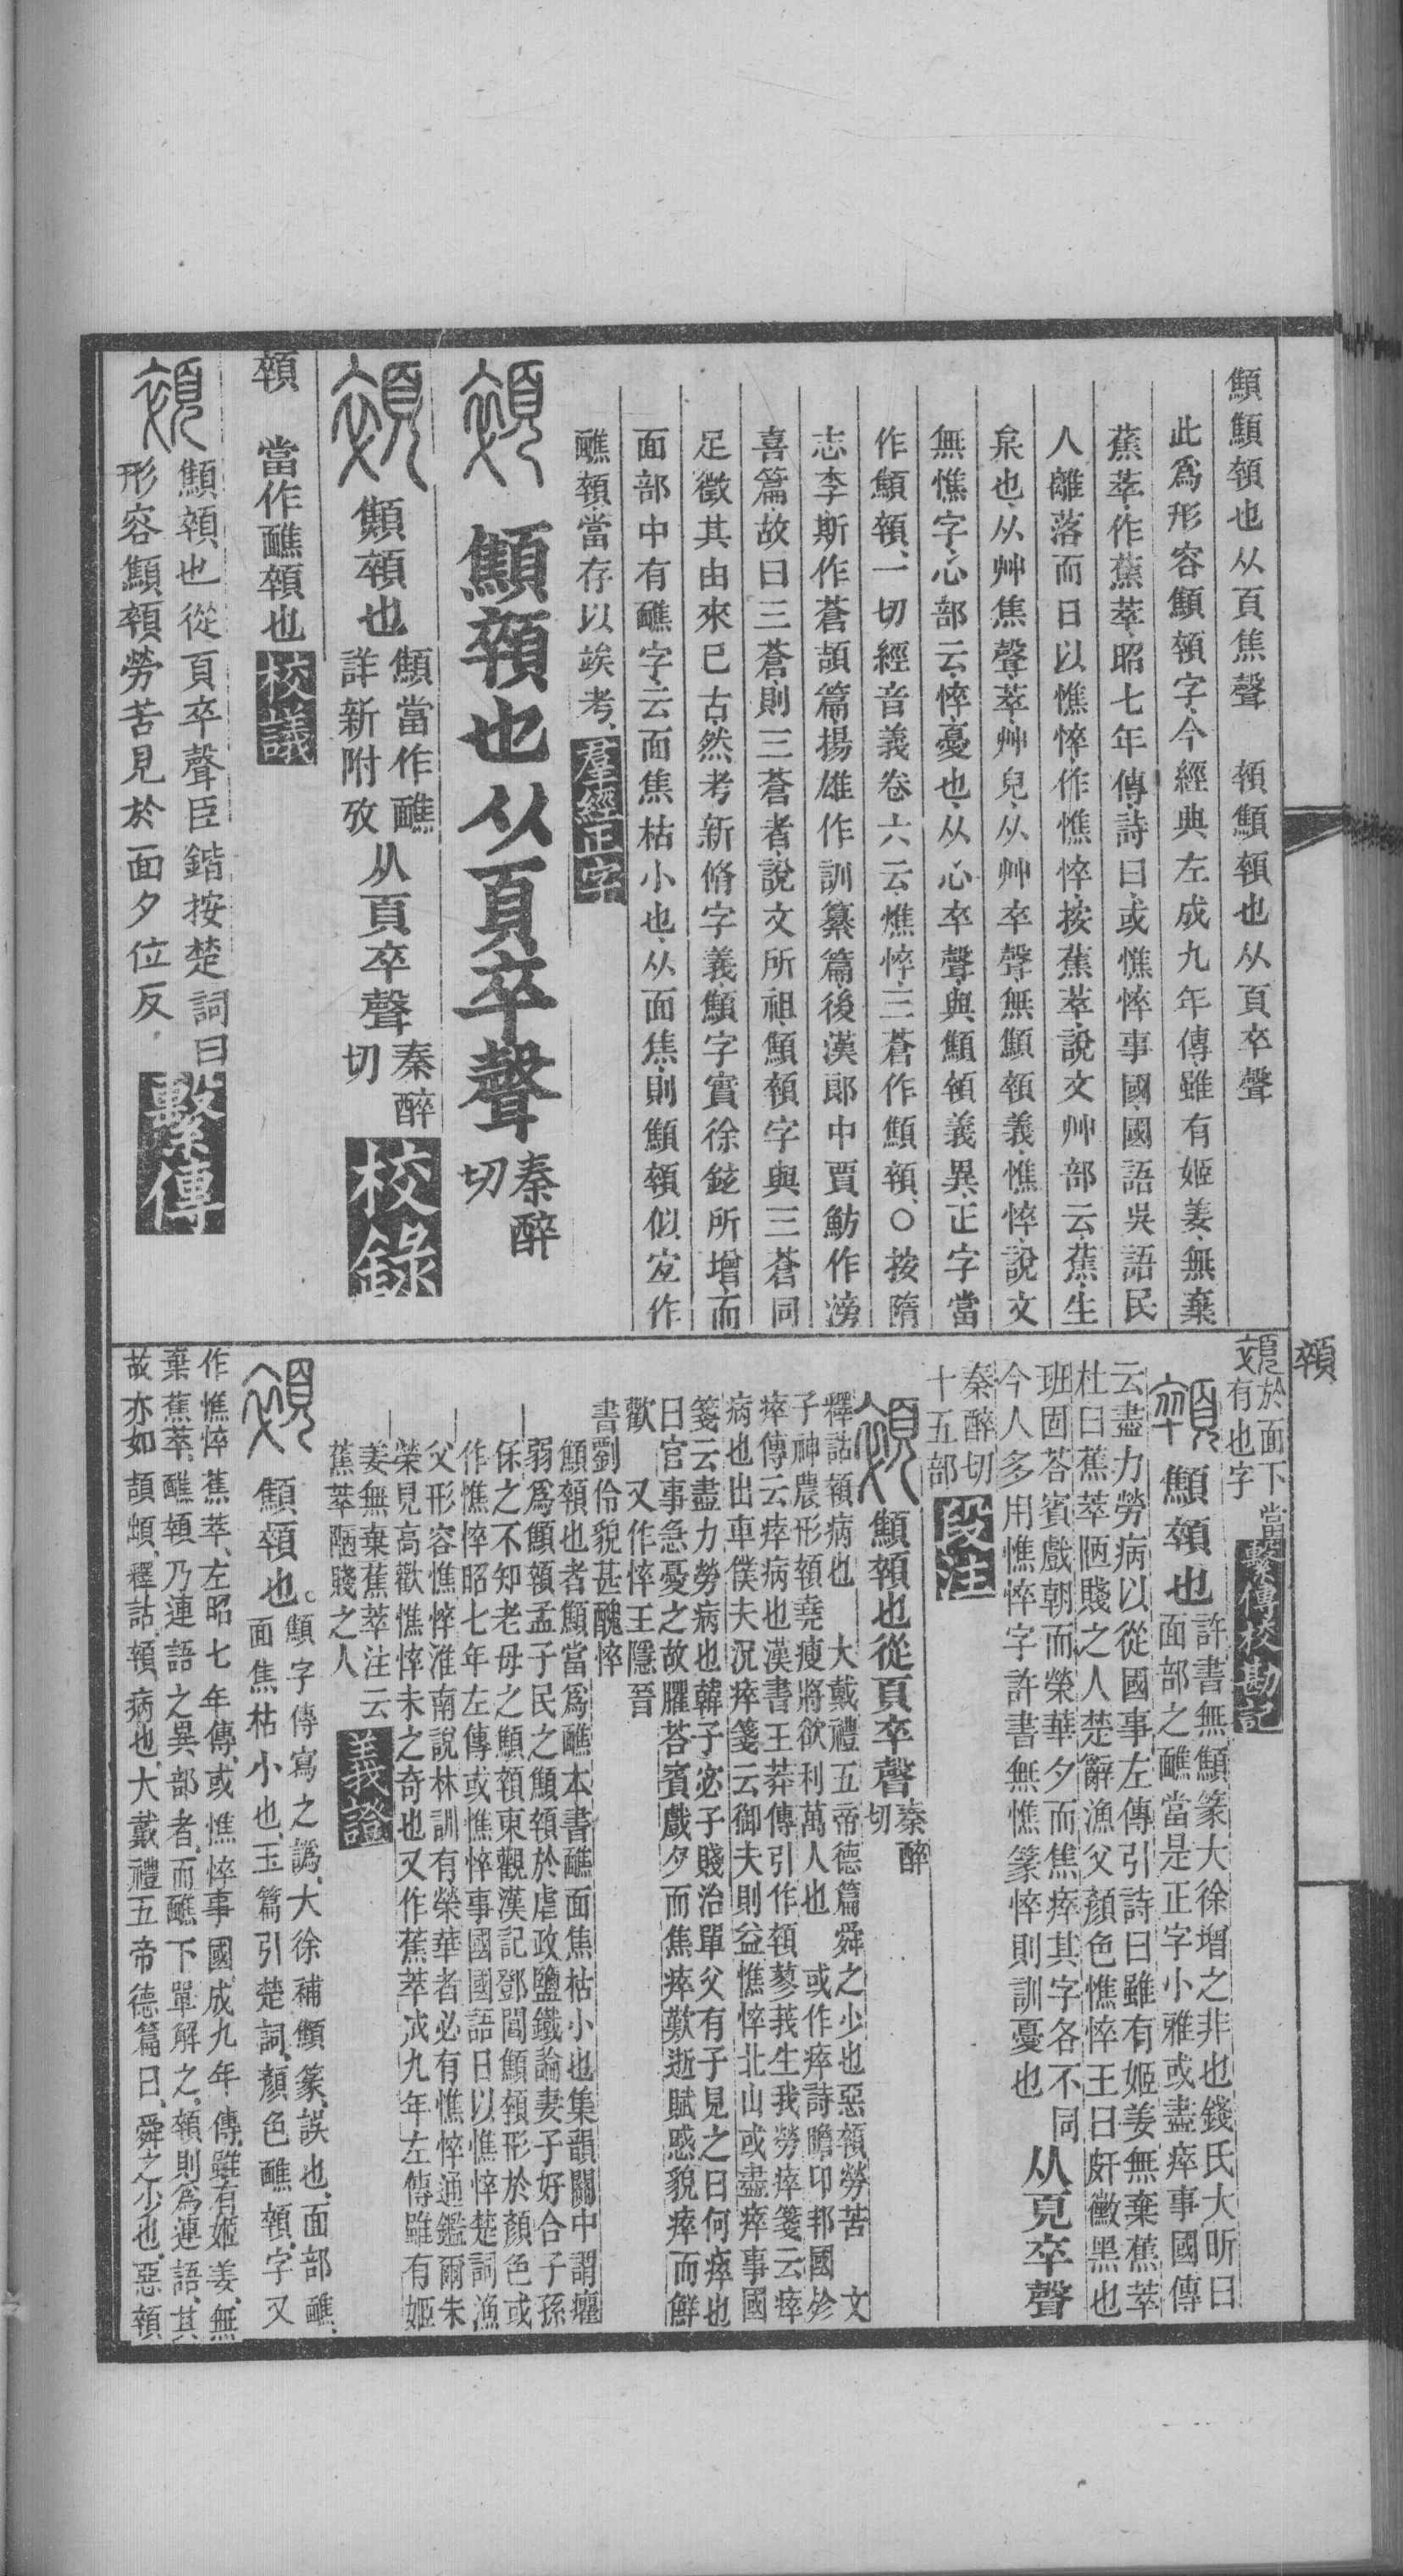 顦顦顇也从頁焦聲　顇顦顇也从頁卒聲
此爲形容顦顇字今經典左成九年傳雖有姬姜無棄
蕉萃作蕉萃昭七年傳詩曰或憔悴事國國語吳語民
人離落而日以憔悴作憔悴按蕉萃說文艸部云蕉生
枲也从艸焦聲萃艸皃从艸卒聲無顦顇義憔悴說文
無憔字心部云悴憂也从心卒聲與顦顇義異正字當
作顦顇一切經音義卷六云憔悴三蒼作顦顇○按隋
志李斯作蒼頡篇揚雄作訓纂篇後漢郎中賈魴作滂
喜篇故曰三蒼則三蒼者說文所祖顦顇字與三蒼同
足徵其由來已古然考新脩字義顦字實徐鉉所增而
面部中有醮字云面焦枯小也从面焦則顦顇似宐作
醮顇當存以竢考 羣經正字
顇 顦顇也从頁卒聲 秦醉
切
顇 顦顇也 顦當作醮
詳新附攷 从頁卒聲 秦醉
切 校錄
顇　當作醮顇也 校議
顇 顦顇也從頁卒聲臣鍇按楚詞曰
形容顦顇勞苦見於面夕位反 繫傳
顇
顇 於面下當
有也字 繫傳校勘記
顇 顦顇也 許書無顦篆大徐增之非也錢氏大昕曰
面部之醮當是正字小雅或盡瘁事國傳
云盡力勞病以從國事左傳引詩曰雖有姬姜無棄蕉萃
杜曰蕉萃陋賤之人楚辭漁父顏色憔悴王曰皯黴黑也
班固荅賓戲朝而榮華夕而焦瘁其字各不同
今人多用憔悴字許書無憔篆悴則訓憂也 从頁卒聲
秦醉切
十五部 段注
顇 顦顇也從頁卒聲 秦醉
切
釋詁顇病也　大戴禮五帝德篇舜之少也惡顇勞苦　文
子神農形顇堯瘦將欲利萬人也　或作瘁詩瞻卬邦國殄
瘁傳云瘁病也漢書王莽傳引作顇蓼莪生我勞瘁箋云瘁
病也出車僕夫況瘁箋云御夫則益憔悴北山或盡瘁事國
箋云盡力勞病也韓子宓子賤治單父有子見之曰何瘁也
曰官事急憂之故臞荅賓戲夕而焦瘁歎逝賦慼貌瘁而鮮
歡　又作悴王隱晉
書劉伶貌甚醜悴
顦顇也者顦當爲醮本書醮面焦枯小也集韻關中謂癯
弱爲顦顇孟子民之顦顇於虐政鹽鐵論妻子好合子孫
保之不知老母之顦顇東觀漢記鄧閶顦顇形於顏色或
作憔悴昭七年左傳或憔悴事國國語日以憔悴楚詞漁
父形容憔悴淮南說林訓有榮華者必有憔悴通鑑爾朱
榮見高歡憔悴未之奇也又作蕉萃成九年左傳雖有姬
姜無棄蕉萃注云
蕉萃陋賤之人 義證
顇 顦顇也。 顦字傳寫之譌大徐補顦篆誤也面部醮
面焦枯小也玉篇引楚詞顏色醮顇字又
作憔悴蕉萃左昭七年傳或憔悴事國成九年傳雖有姬姜無
棄蕉萃醮顇乃連語之異部者而醮下單解之顇則爲連語其
故亦如頡䪼釋詁顇病也大戴禮五帝德篇曰舜之少也惡顇